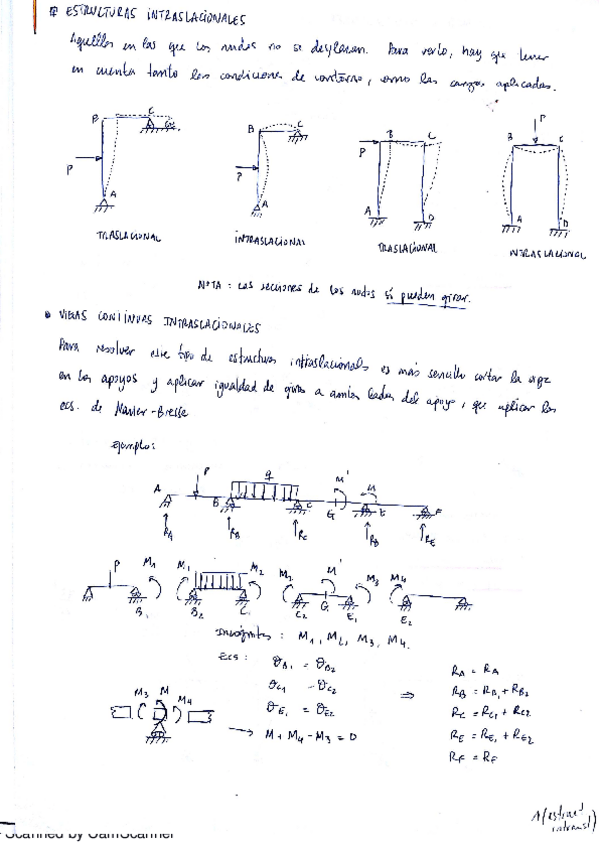 ESTRUCTURAS INTRASLACIONALES
Aquéllas en las que los nudos no se desplazan. Para verlo, hay que tener
en cuenta tanto las condiciones de contorno, como las cargas aplicadas.
B C P A
B C P A
P B C A D
P B C A D
TRASLACIONAL INTRASLACIONAL TRASLACIONAL INTRASLACIONAL
NOTA: Las secciones de los nudos sí pueden girar.
VIGAS CONTINUAS INTRASLACIONALES
Para resolver este tipo de estructuras intraslacionals es más sencillo cortar la viga
en los apoyos y aplicar igualdad de giros a ambos lados del apoyo, que aplicar las
ecs. de Navier-Bresse
Ejemplo:
A P B q C G M' M E F
RA RB RC RB RE
P M1 M1 M2 M2 M' M3 M4
B1 B2 C1 C2 G E1 E2
Incógnitas: M1, M2, M3, M4.
Ecs: θB1 = θB2
θC1 = θC2
θE1 = θE2
M3 M M4 → M + M4 - M3 = 0
⇒ RA = RA
RB = RB1 + RB2
RC = RC1 + RC2
RE = RE1 + RE2
RF = RF
Scanned by CamScanner